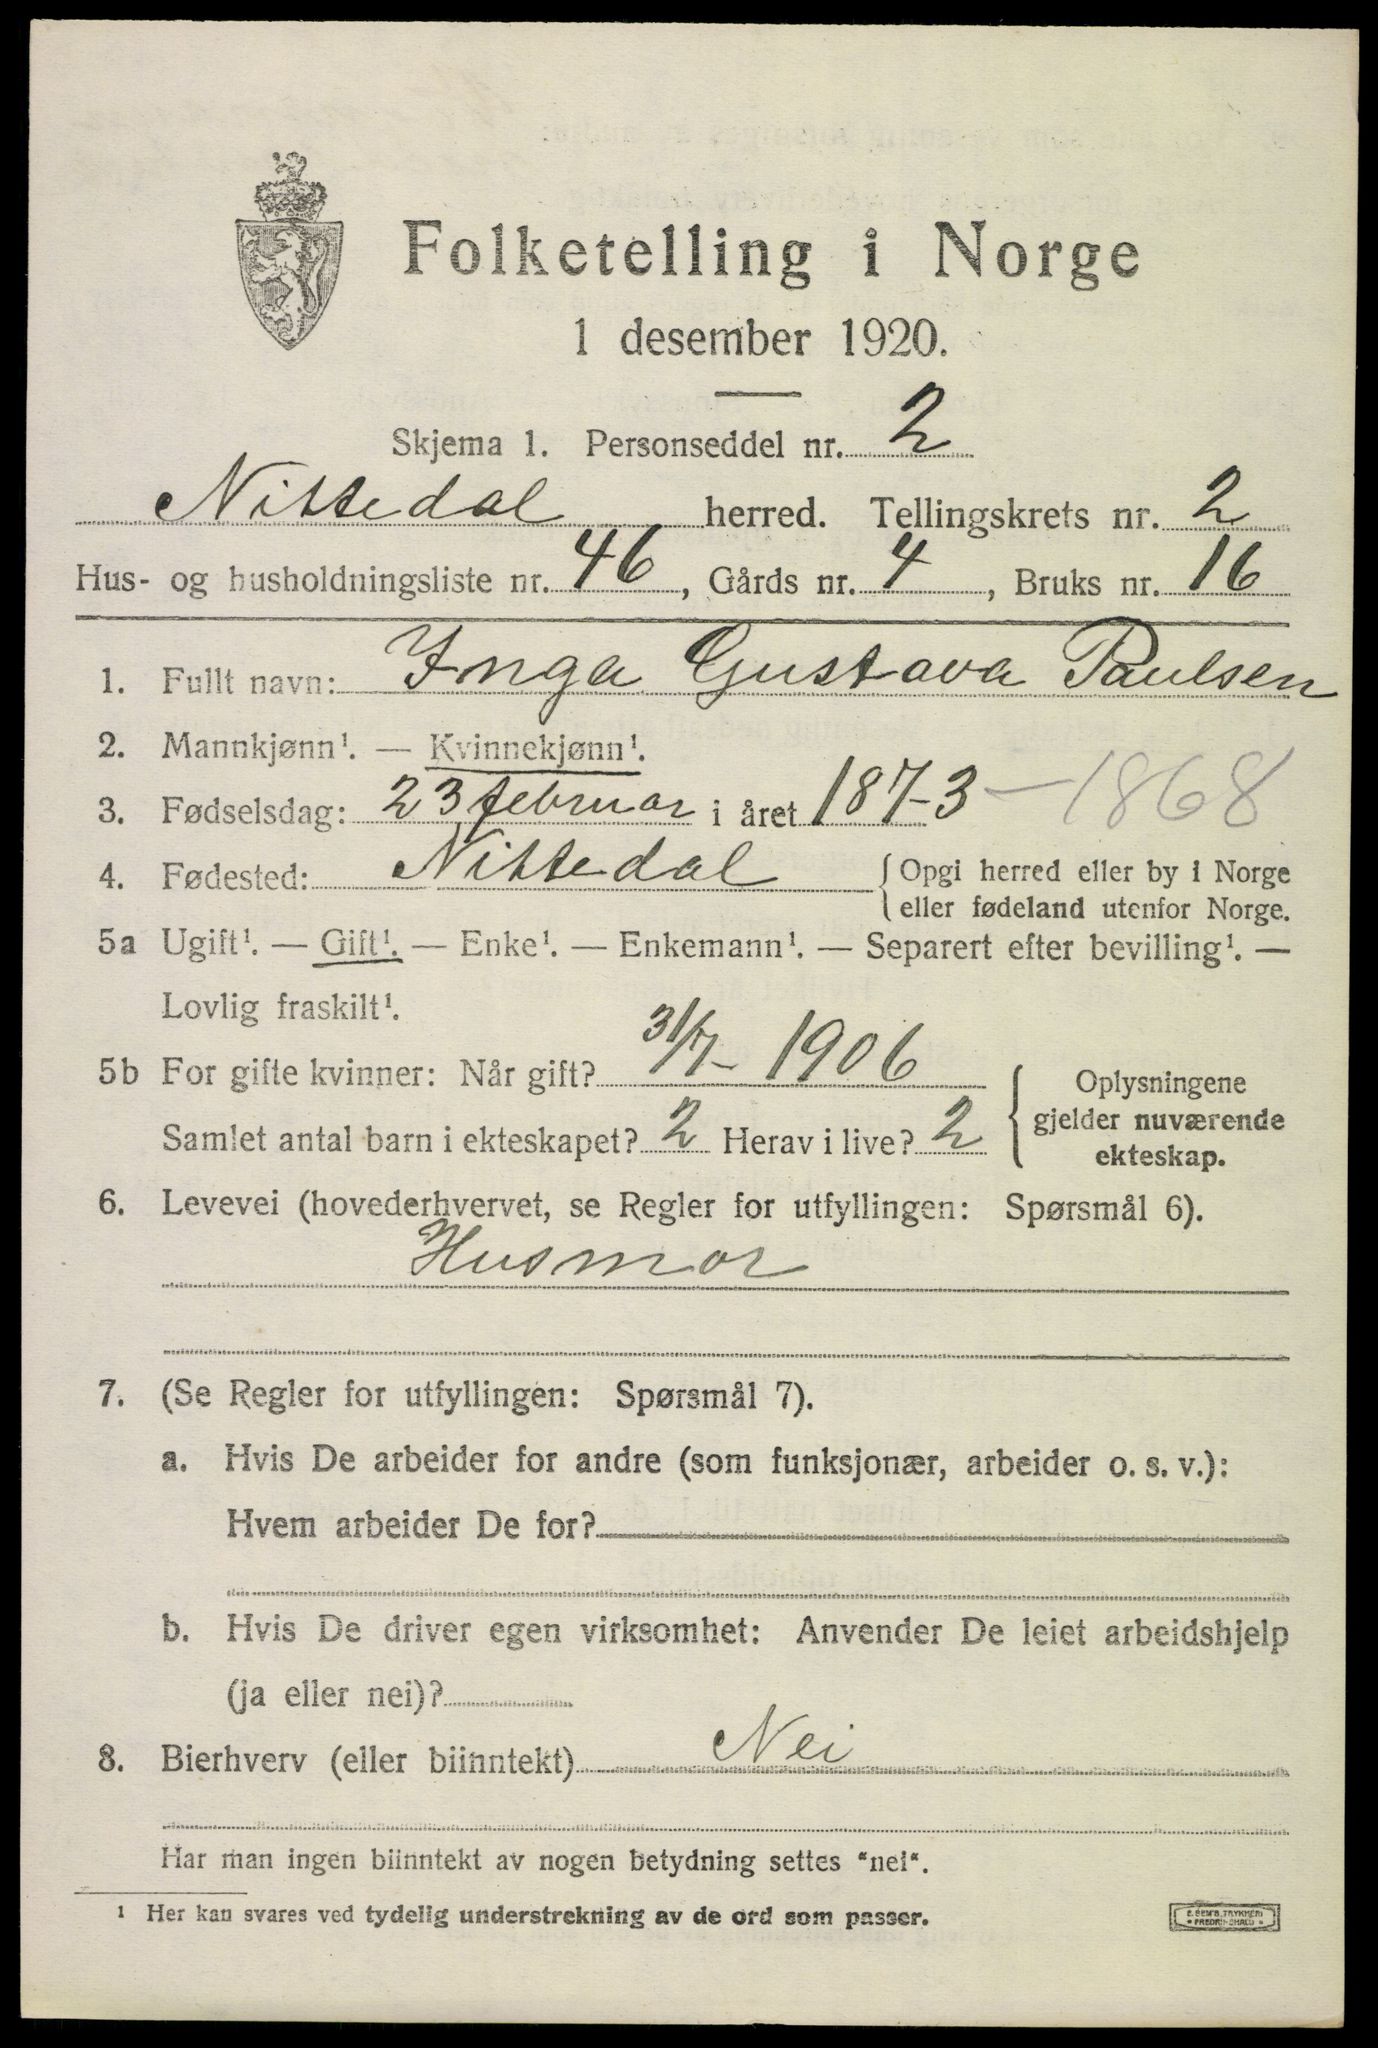 Folketelling i Norge
1 desember 1920.
Skjema 1. Personseddel nr. 2
Nittedal herred. Tellingskrets nr. 2
Hus- og husholdningsliste nr. 46, Gårds nr. 4, Bruks nr. 16
1. Fullt navn: Inga Gustava Paulsen
2. Mannkjønn¹. — Kvinnekjønn¹.
3. Fødselsdag: 23 februar i året 1873 — 1868
4. Fødested: Nittedal { Opgi herred eller by i Norge
eller fødeland utenfor Norge.
5a Ugift¹. — Gift¹. — Enke¹. — Enkemann¹. — Separert efter bevilling¹. —
Lovlig fraskilt¹.
5b For gifte kvinner: Når gift? 31/7 - 1906
Samlet antal barn i ekteskapet? 2 Herav i live? 2
{ Oplysningene
gjelder nuværende
ekteskap.
6. Levevei (hovederhvervet, se Regler for utfyllingen: Spørsmål 6).
Husmor
7. (Se Regler for utfyllingen: Spørsmål 7).
a. Hvis De arbeider for andre (som funksjonær, arbeider o. s. v.):
Hvem arbeider De for?
b. Hvis De driver egen virksomhet: Anvender De leiet arbeidshjelp
(ja eller nei)?
8. Bierhverv (eller biinntekt) Nei
Har man ingen biinntekt av nogen betydning settes "nei".
¹ Her kan svares ved tydelig understrekning av de ord som passer.
E. SEM'S TRYKKERI
FREDRIKSHALD